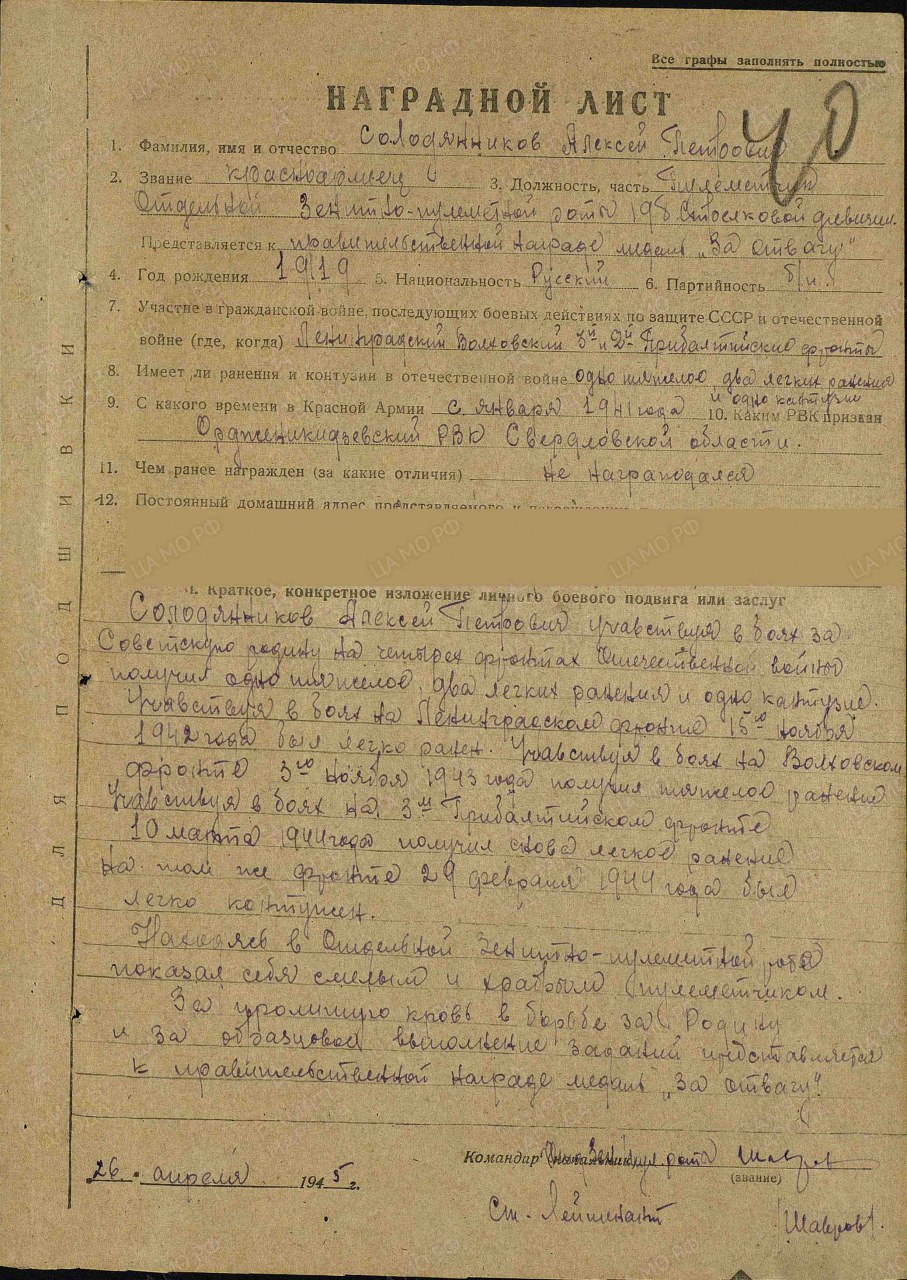 Все графы заполнять полностью
НАГРАДНОЙ ЛИСТ
40
1. Фамилия, имя и отчество Солодянников Алексей Петрович
2. Звание красноармеец 3. Должность, часть Пулеметчик
Отдельной Зенитно-пулеметной роты 198 Стрелковой дивизии.
Представляется к правительственной награде медаль „За отвагу"
4. Год рождения 1919 5. Национальность Русский 6. Партийность б/п.
7. Участие в гражданской войне, последующих боевых действиях по защите СССР и отечественной
войне (где, когда) Ленинградский Волховский 3й и 2й Прибалтийские фронты
8. Имеет ли ранения и контузии в отечественной войне одно тяжелое, два легких ранения
и одно кантузии
9. С какого времени в Красной Армии с января 1941 года 10. Каким РВК призван
Орджоникидзевский РВК Свердловской области.
11. Чем ранее награжден (за какие отличия) не награждался
12. Постоянный домашний адрес представляемого к
Краткое, конкретное изложение личного боевого подвига или заслуг
Солодянников Алексей Петрович учавствуя в боях за
Советскую родину на четырех фронтах Отечественной войны
получил одно тяжелое, два легких ранения и одно кантузие.
Учавствуя в боях на Ленинградском фронте 15го ноября
1942 года был легко ранен. Учавствуя в боях на Волховском
фронте 3го ноября 1943 года получил тяжелое ранение
Учавствуя в боях на 3м Прибалтийском фронте
10 марта 1944 года получил снова легкое ранение
На том же фронте 29 февраля 1944 года был
легко контужен.
Находясь в Отдельной Зенитно-пулеметной роте
показал себя смелым и храбрым пулеметчиком.
За пролитую кровь в борьбе за Родину
и за образцовое выполнение заданий представляется
к правительственной награде медаль „За отвагу"
Командир Зен. пул роты Шавров
(звание)
26 " апреля 1945 г.
Ст. Лейтенант /Шавров/.
ДЛЯ ПОДШИВКИ
ЦАМО РФ